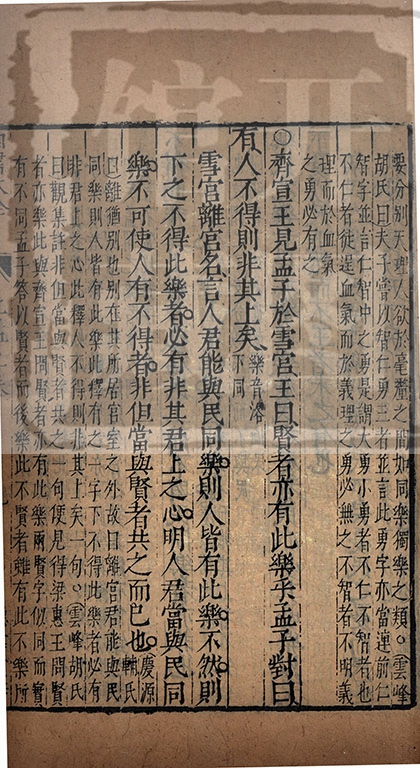 要分別天理人欲於毫釐之間同樂獨樂之類○雲峰
胡氏曰夫子嘗以智仁勇三者並言此勇字亦當連前仁
智字並言仁智中之勇是謂大勇小勇者不仁不智者也
不仁者徒逞血氣而於義理之勇必無之不智者不明義
理而於血氣
之勇必有之
○齊宣王見孟子於雪宮王曰賢者亦有此樂乎孟子對曰
有人不得則非其上矣樂音洛下同
雪宮離宮名言人君能與民同樂則人皆有此樂不然則
下之不得此樂者必有非其君上之心明人君當與民同
樂不可使人有不得者非但當與賢者共之而已也慶源輔氏
曰離猶別也別在其所居宮室之外故曰離宮君能與民
同樂則人皆有此樂此釋有之一字下不得此樂者必有
非君上之心此釋人不得則非其上矣一句○雲峰胡氏
曰觀集註非但當與賢者共之一句便見得梁惠王問賢
者亦樂此與齊宣王問賢者亦有此樂兩賢字似同而實
有不同孟子答以賢者而後樂此不賢者雖有此不樂所